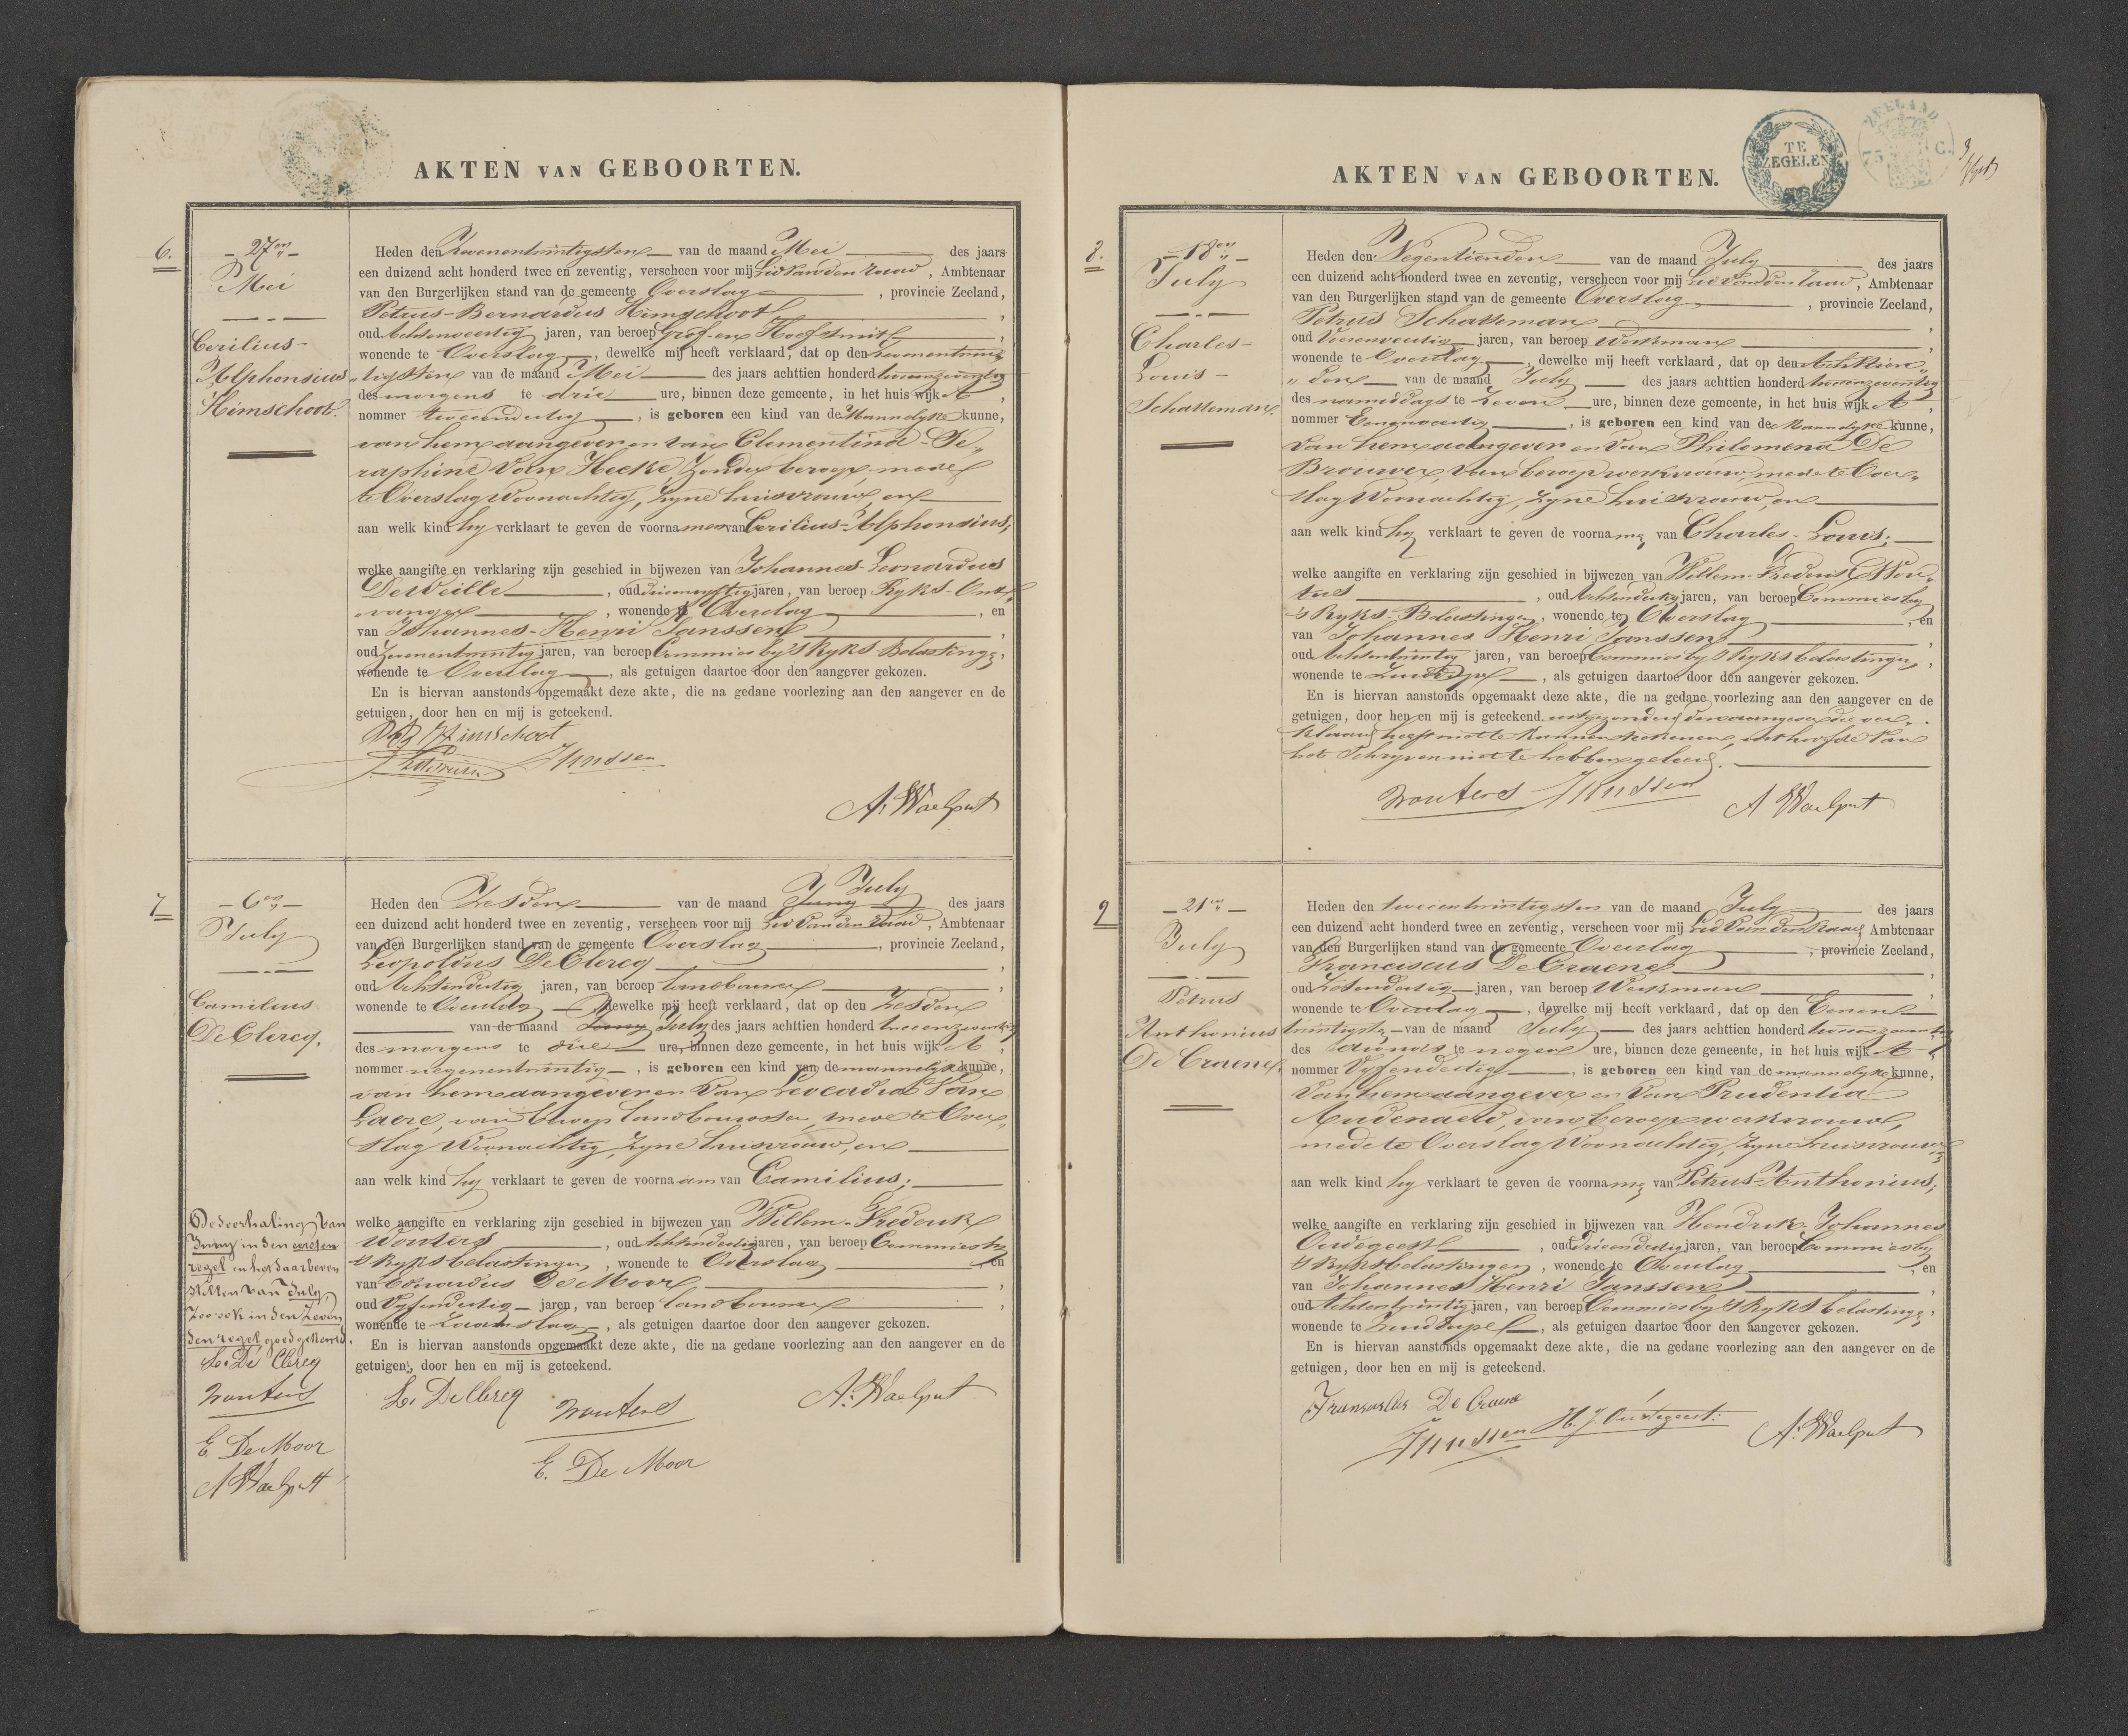 AKTEN VAN GEBOORTEN.
6.
27en
Mei
Cerilius-
Alphonsius
Himschoot.
Heden den Zevenentwintigsten van de maand Mei des jaars
een duizend acht honderd twee en zeventig, verscheen voor mij Lid van den raad, Ambtenaar
van den Burgerlijken stand van de gemeente Overslag, provincie Zeeland,
Petrus-Bernardus Himschoot,
oud Achtenveertig jaren, van beroep Grof- en Hoefsmit,
wonende te Overslag, dewelke mij heeft verklaard, dat op den zevenentwin
"tigsten van de maand Mei des jaars achttien honderd tweeenzeventig
des morgens te drie ure, binnen deze gemeente, in het huis wijk A,
nommer tweeendertig, is geboren een kind van de Mannelyke kunne,
van hem aangever en van Clementina-Se"
raphine Van Hecke, Zonder beroep, mede
te Overslag Woonachtig, Zyne huisvrouw, en
aan welk kind hy verklaart te geven de voornamen van Cerilius-Alphonsius;
welke aangifte en verklaring zijn geschied in bijwezen van Johannes-Leonardus
DeWeille, oud drieenvyftig jaren, van beroep Ryks-Ont"
vanger, wonende te Overslag, en
van Johannes-Henri Janssen,
oud Zevenentwintig jaren, van beroep Commies by 's Ryks Belasting,
wonende te Overslag, als getuigen daartoe door den aangever gekozen.
En is hiervan aanstonds opgemaakt deze akte, die na gedane voorlezing aan den aangever en de
getuigen, door hen en mij is geteekend.
Himschoot
Janssen
A. Waelput
7
6en
July
Camilius
DeClercq.
Heden den Zesden van de maand Juny July des jaars
een duizend acht honderd twee en zeventig, verscheen voor mij Lid van den Raad, Ambtenaar
van den Burgerlijken stand van de gemeente Overslag, provincie Zeeland,
Leopoldus DeClercq,
oud Achtendertig jaren, van beroep landbouwer,
wonende te Overslag, dewelke mij heeft verklaard, dat op den Zesden
van de maand Juny July des jaars achttien honderd tweeenzeventig
des morgens te drie ure, binnen deze gemeente, in het huis wijk A,
nommer negenentwintig, is geboren een kind van de mannelyke kunne,
van hem aangever en van Leocadia Van
Laere, van beroep landbouwster, mede te Over"
slag Woonachtig, Zyne huisvrouw, en
aan welk kind hy verklaart te geven de voornaam van Camilius;
De doorhaling van
Juny in den eersten
regel en het daarboven
stellen van July,
Zoo ook in den Zeven
den regel goedgekeurd.
L. De Clercq
Wouters
E. De Moor
A. Waelput
welke aangifte en verklaring zijn geschied in bijwezen van Willem-Frederik
Wouters, oud Achtendertig jaren, van beroep Commies by
's Ryks belastingen, wonende te Overslag en
van Eduardus De Moor,
oud Vyfendertig jaren, van beroep landbouwer,
wonende te Zaamslag, als getuigen daartoe door den aangever gekozen.
En is hiervan aanstonds opgemaakt deze akte, die na gedane voorlezing aan den aangever en de
getuigen, door hen en mij is geteekend.
L. DeClercq Wouters A. Waelput
E. De Moor
AKTEN VAN GEBOORTEN.
TE
ZEGELEN
ZEELAND
75 C.
8.
18en
July
Charles-
Louis-
Schatteman.
Heden den Negentienden van de maand July des jaars
een duizend acht honderd twee en zeventig, verscheen voor mij Lid van den raad, Ambtenaar
van den Burgerlijken stand van de gemeente Overslag, provincie Zeeland,
Petrus Schatteman,
oud Vierenveertig jaren, van beroep Werkman,
wonende te Overslag, dewelke mij heeft verklaard, dat op den Achttien"
"den van de maand July des jaars achttien honderd tweeenzeventig
des namiddags te Zeven ure, binnen deze gemeente, in het huis wijk A,
nommer Eenenveertig, is geboren een kind van de Mannelyke kunne,
van hem aangever en van Philomena De
Brouwer, van beroep werkvrouw, mede te Over"
slag Woonachtig, Zyne huisvrouw, en
aan welk kind hy verklaart te geven de voorname van Charles-Louis;
welke aangifte en verklaring zijn geschied in bijwezen van Willem-Frederik Wou"
ters, oud Achtendertig jaren, van beroep Commies by
's Ryks-Belastingen, wonende te Overslag, en
van Johannes Henri Janssen,
oud Achtentwintig jaren, van beroep Commies by 's Ryks belastingen,
wonende te Zuiddorpe, als getuigen daartoe door den aangever gekozen.
En is hiervan aanstonds opgemaakt deze akte, die na gedane voorlezing aan den aangever en de
getuigen, door hen en mij is geteekend. uitgezonderd den aangever die ver"
klaard heeft niet te kunnen teekenen, uit hoofde van
het Schryven niet te hebben geleerd.
Wouters Janssen A Waelput
9
21en
July
Petrus
Anthonius
De Craene.
Heden den tweeentwintigsten van de maand July des jaars
een duizend acht honderd twee en zeventig, verscheen voor mij Lid Van den Raad, Ambtenaar
van den Burgerlijken stand van de gemeente Overslag, provincie Zeeland,
Franciscus DeCraene,
oud Zesendertig jaren, van beroep Werkman,
wonende te Overslag, dewelke mij heeft verklaard, dat op den Eenen
twintigste van de maand July des jaars achttien honderd tweeenzeventig
des avonds te negen ure, binnen deze gemeente, in het huis wijk A,
nommer Vyfendertig, is geboren een kind van de mannelyke kunne,
Van hem aangever en van Prudentia
Audenaerd, van beroep werkvrouw,
mede te Overslag Woonachtig, Zyne huisvrouw,
aan welk kind hy verklaart te geven de voorname van Petrus-Anthonius;
welke aangifte en verklaring zijn geschied in bijwezen van Hendrik-Johannes
Oudegeest, oud drieendertig jaren, van beroep Commies by
's Ryks belastingen, wonende te Overslag, en
van Johannes Henri Janssen,
oud Achtentwintig jaren, van beroep Commies by 's Ryks belasting,
wonende te Zuiddorpe, als getuigen daartoe door den aangever gekozen.
En is hiervan aanstonds opgemaakt deze akte, die na gedane voorlezing aan den aangever en de
getuigen, door hen en mij is geteekend.
De Craene
Janssen H. J. Oudegeest. A. Waelput